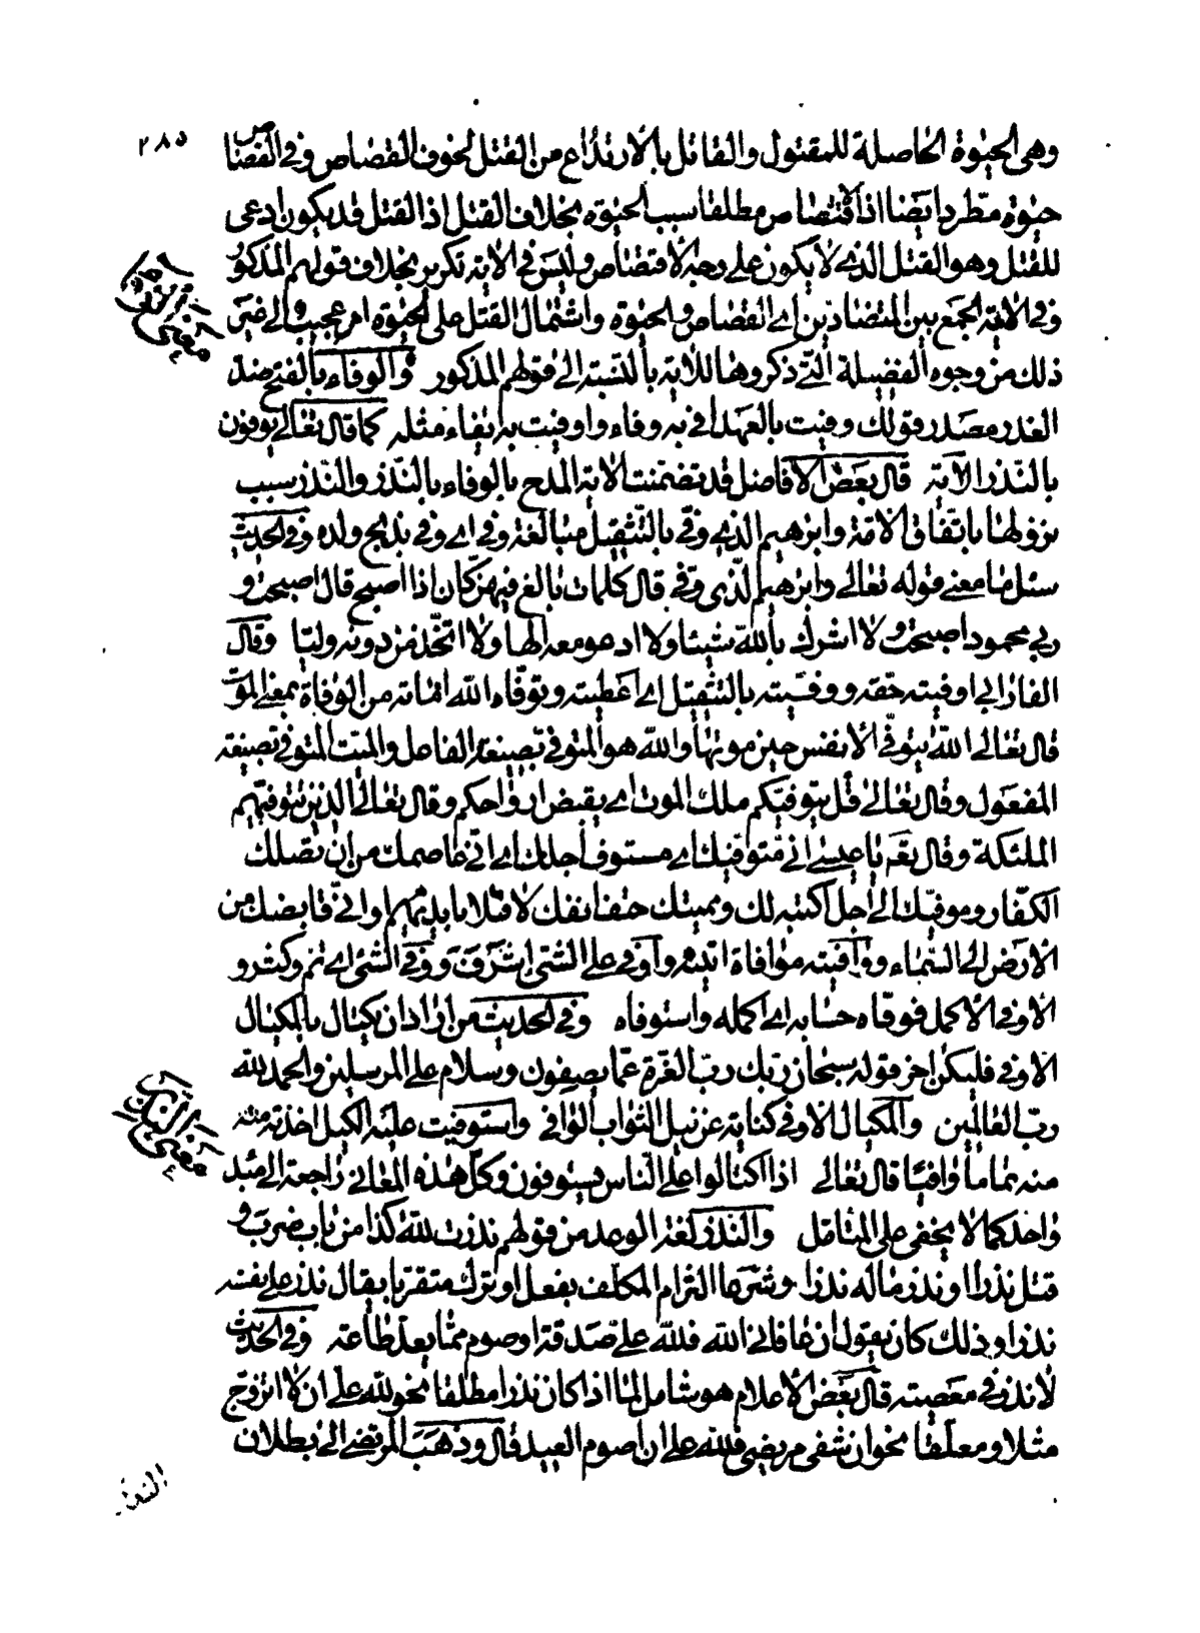 ٢٨٥
وهى الحيوة الحاصلة للمقتول والقاتل بالارتداع من القتل لخوف القصاص وفى القصاص
حيوة مطرد ايضا اذ الاقتصاص مطلقا سبب الحيوة بخلاف القتل اذ القتل قد يكون ادعى
للقتل وهو القتل الذى لا يكون على وجه الاقتصاص وليس فى الاية تكرير بخلاف قولهم المذكور
وفى الاية الجمع بين المتضادين اى القصاص والحيوة واشتمال القتل على الحيوة امر عجيب والى غير
ذلك من وجوه الفضيلة التى ذكروها للاية بالنسبة الى قولهم المذكور والوفاء بالفتح ضد
الغدر مصدر قولك وفيت بالعهد افى به وفاء واوفيت به ايفاء مثله كما قال تعالى يوفون
بالنذر الاية قال بعض الافاضل قد تضمنت الاية المدح بالوفاء بالنذر والنذر سبب
نزولها باتفاق الامة وابرهيم الذى وفى بالتثقيل مبالغة وفى اى وفى بذبح ولده وفى الحديث
سئل ما معنى قوله تعالى وابرهيم الذى وفى قال كلمات بالغ فيهن كان اذا اصبح قال اصبحت و
ربى محمود اصبحت ولا اشرك بالله شيئا ولا ادعو معه الها ولا اتخذ من دونه وليا وقال
الفارابى اوفيته حقه ووفيته بالتثقيل اى اعطيته وتوفاه الله اماته من الوفاة بمعنى الموت
قال تعالى الله يتوفى الانفس حين موتها والله هو المتوفى بصيغة الفاعل والميت المتوفى بصيغة
المفعول وقال تعالى قل يتوفيكم ملك الموت اى يقبض ارواحكم وقال تعالى الذين تتوفيهم
الملئكة وقال تعم يا عيسى انى متوفيك اى مستوف اجلك اى انى عاصمك من ان تصلك
الكفار وموفيك الى اجل اكتبه لك ومميتك حتف انفك لا قتلا بايديهم او انى قابضك من
الارض الى السماء ووافيته موافاة اتيته واوفى على الشئ اشرف ووفى الشئ اى تم وكثر و
الاوفى الاكمل فوفاه حسابه اى اكمله واستوفاه وفى الحديث من اراد ان يكتال بالمكيال
الاوفى فليكن اخر قوله سبحان ربك رب العزة عما يصفون وسلام على المرسلين والحمد لله
رب العالمين والمكيال الاوفى كناية عن نيل الثواب الوافى واستوفيت عليه الكيل اخذته منه
منه تماما وافيا قال تعالى اذا اكتالوا على الناس يستوفون وكل هذه المعانى راجعة الى مبد
واحد كما لا يخفى على المتامل والنذر لغة الوعد من قولهم نذرت لله كذا من باب ضرب و
قتل نذرا ونذر ماله نذرا وشرعا التزام المكلف بفعل او ترك متقربا يقال نذر على نفسه
نذرا وذلك كان يقول ان عافانى الله فلله على صدقة او صوم مما يعد طاعة وفى الحديث
لا نذر فى معصية قال بعض الاعلام هو شامل لما اذا كان نذرا مطلقا نحو لله على ان لا اتزوج
مثلا ومعلقا نحو ان شفى مريضى فلله على ان اصوم العيد قال وذهب المرتضى الى بطلان
معنى الوفاء
معنى النذر